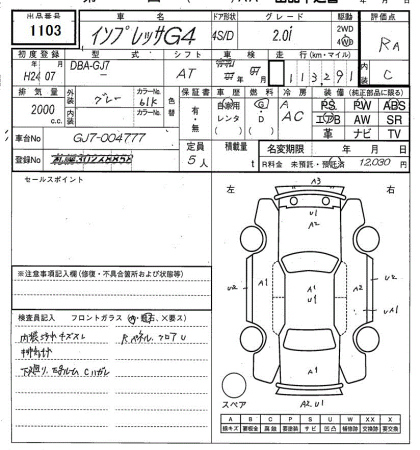 出品番号 車名 ドア形状 グレード 駆動 評価点
1103 インプレッサG4 4S/D 2.0i 2WD 4WD RA
初度登録 型式 シフト 車検 走行(km・マイル) 内装
H24 年 07 月 DBA-GJ7 AT 年 月 113,291 C
排気量 外装 カラーNo. 内装 カラーNo. 色替 保証書 車歴 燃料 冷房 装備(純正部品に限る)
2000 c.c. グレー 61K 有・無 自家用 レンタ ( ) G・D A AC PS PW ABS
エアB AW SR
革 ナビ TV
車台No GJ7-004777 定員 5人 積載量 t 名変期限 年 月 日
登録No R料金 未預託・預託済 12,030 円
セールスポイント 左 右
※注意事項記入欄(修復・不具合箇所および状態等)
検査員記入 フロントガラス
内張 キズスレ Rパネル、フロアU
下廻り、 Cハガレ
A3
U1
A2
A1
U2 A1 A1 U1 A1 U2
A1
スペア A2, U1
A B C P S U W X XX X
線キズ 要板金 腐蝕 要塗装 サビ 凹凸 補修跡 交換跡 要交換